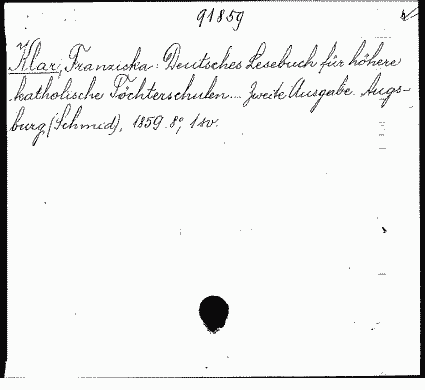 91859
Klar, Franziska: Deutsches Lesebuch für höhere
katholische Töchterschulen... Zweite Ausgabe. Augs-
burg (Schmid), 1859. 8°,